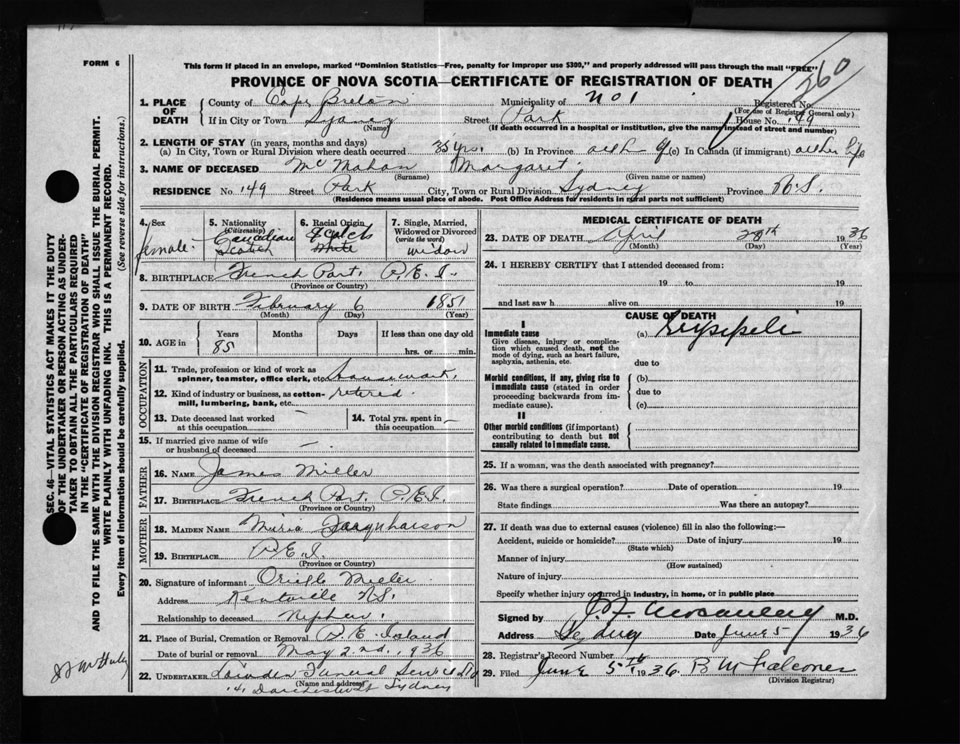 FORM 6
This form if placed in an envelope, marked "Dominion Statistics—Free, penalty for improper use $300," and properly addressed will pass through the mail "FREE"
PROVINCE OF NOVA SCOTIA—CERTIFICATE OF REGISTRATION OF DEATH
260
1. PLACE OF DEATH
County of Cape Breton Municipality of No 1 Registered No.
(For use of Registrar General only)
If in City or Town Sydney Street Park House No. 149
(Name) (If death occurred in a hospital or institution, give the name instead of street and number)
2. LENGTH OF STAY (in years, months and days)
(a) In City, Town or Rural Division where death occurred 35 yrs. (b) In Province (c) In Canada (if immigrant) all her life
3. NAME OF DECEASED McMahan Margaret
(Surname) (Given name or names)
RESIDENCE No 149 Street Park City, Town or Rural Division Sydney Province N.S.
(Residence means usual place of abode. Post Office Address for residents in rural parts not sufficient)
4. Sex female.
5. Nationality (Citizenship) Canadian Scotch
6. Racial Origin Scotch White
7. Single, Married, Widowed or Divorced (write the word) widow
8. BIRTHPLACE French Port, P.E.I.
(Province or Country)
9. DATE OF BIRTH February 6 1851
(Month) (Day) (Year)
10. AGE in Years 85 Months Days If less than one day old hrs. or min.
OCCUPATION
11. Trade, profession or kind of work as spinner, teamster, office clerk, etc. housework.
12. Kind of industry or business, as cotton-mill, lumbering, bank, etc. retired.
13. Date deceased last worked at this occupation —
14. Total yrs. spent in this occupation —
15. If married give name of wife or husband of deceased —
FATHER
16. NAME James Miller
17. BIRTHPLACE French Port, P.E.I.
(Province or Country)
MOTHER
18. MAIDEN NAME
19. BIRTHPLACE P.E.I.
(Province or Country)
20. Signature of informant Miller
Address Kentville N.S.
Relationship to deceased Nephew.
21. Place of Burial, Cremation or Removal P.E. Island
Date of burial or removal May 2nd, 1936
22. UNDERTAKER Funeral
(Name and address)
Dorchester St Sydney
MEDICAL CERTIFICATE OF DEATH
23. DATE OF DEATH April 1936
(Month) (Day) (Year)
24. I HEREBY CERTIFY that I attended deceased from:
19 to 19
and last saw h alive on 19
CAUSE OF DEATH
I
Immediate cause (a) Erysipelis
Give disease, injury or complication which caused death, not the mode of dying, such as heart failure, asphyxia, asthenia, etc.
due to
Morbid conditions, if any, giving rise to immediate cause (stated in order proceeding backwards from immediate cause).
(b)
due to
(c)
II
Other morbid conditions (if important) contributing to death but not causally related to immediate cause.
25. If a woman, was the death associated with pregnancy?
26. Was there a surgical operation? Date of operation 19
State findings Was there an autopsy?
27. If death was due to external causes (violence) fill in also the following:—
Accident, suicide or homicide? Date of injury 19
(State which)
Manner of injury
(How sustained)
Nature of injury
Specify whether injury occurred in industry, in home, or in public place
Signed by M.D.
Address Sydney Date June 5 1936
28. Registrar's Record Number
29. Filed June 5th 1936. B M Falconer
(Division Registrar)
SEC. 46—VITAL STATISTICS ACT MAKES IT THE DUTY
OF THE UNDERTAKER OR PERSON ACTING AS UNDER-
TAKER TO OBTAIN ALL THE PARTICULARS REQUIRED
IN THE "CERTIFICATE OF REGISTRATION OF DEATH"
AND TO FILE THE SAME WITH THE DIVISION REGISTRAR WHO SHALL ISSUE THE BURIAL PERMIT.
WRITE PLAINLY WITH UNFADING INK. THIS IS A PERMANENT RECORD.
Every item of information should be carefully supplied. (See reverse side for instructions.)